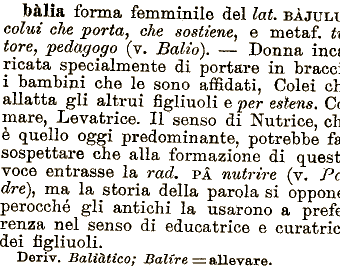 bàlia forma femminile del lat. BÀJULU
colui che porta, che sostiene, e metaf. tu
tore, pedagogo (v. Balio). — Donna inca
ricata specialmente di portare in bracci
i bambini che le sono affidati, Colei ch
allatta gli altrui figliuoli e per estens. Co
mare, Levatrice. Il senso di Nutrice, ch
è quello oggi predominante, potrebbe fa
sospettare che alla formazione di quest
voce entrasse la rad. PÂ nutrire (v. Pa
dre), ma la storia della parola si oppone
perocché gli antichi la usarono a prefe
renza nel senso di educatrice e curatric
dei figliuoli.
Deriv. Baliàtico; Balíre = allevare.